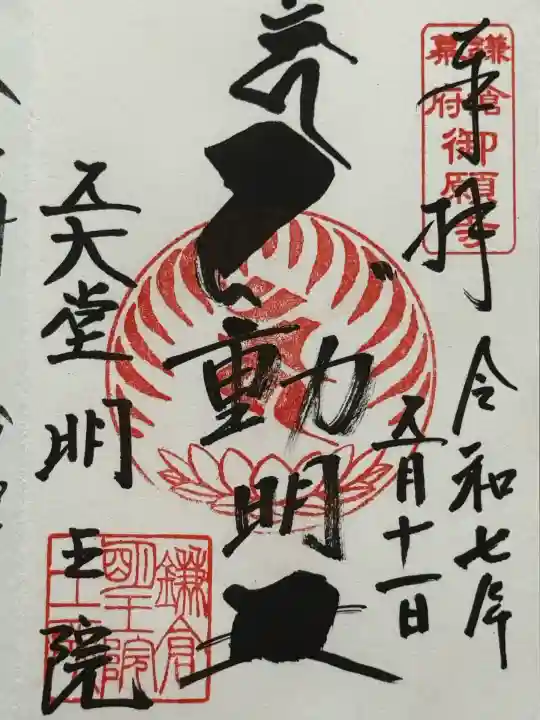 鎌倉
幕府御願寺
奉拝
令和七年
五月十一日
動明
五大堂明王院
鎌倉
明王院